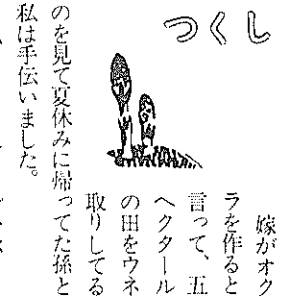 つくし
嫁がオク
ラを作ると
言って、五
ヘクタール
の田をウネ
取りしてる
のを見て夏休みに帰ってた孫と
私は手伝いました。